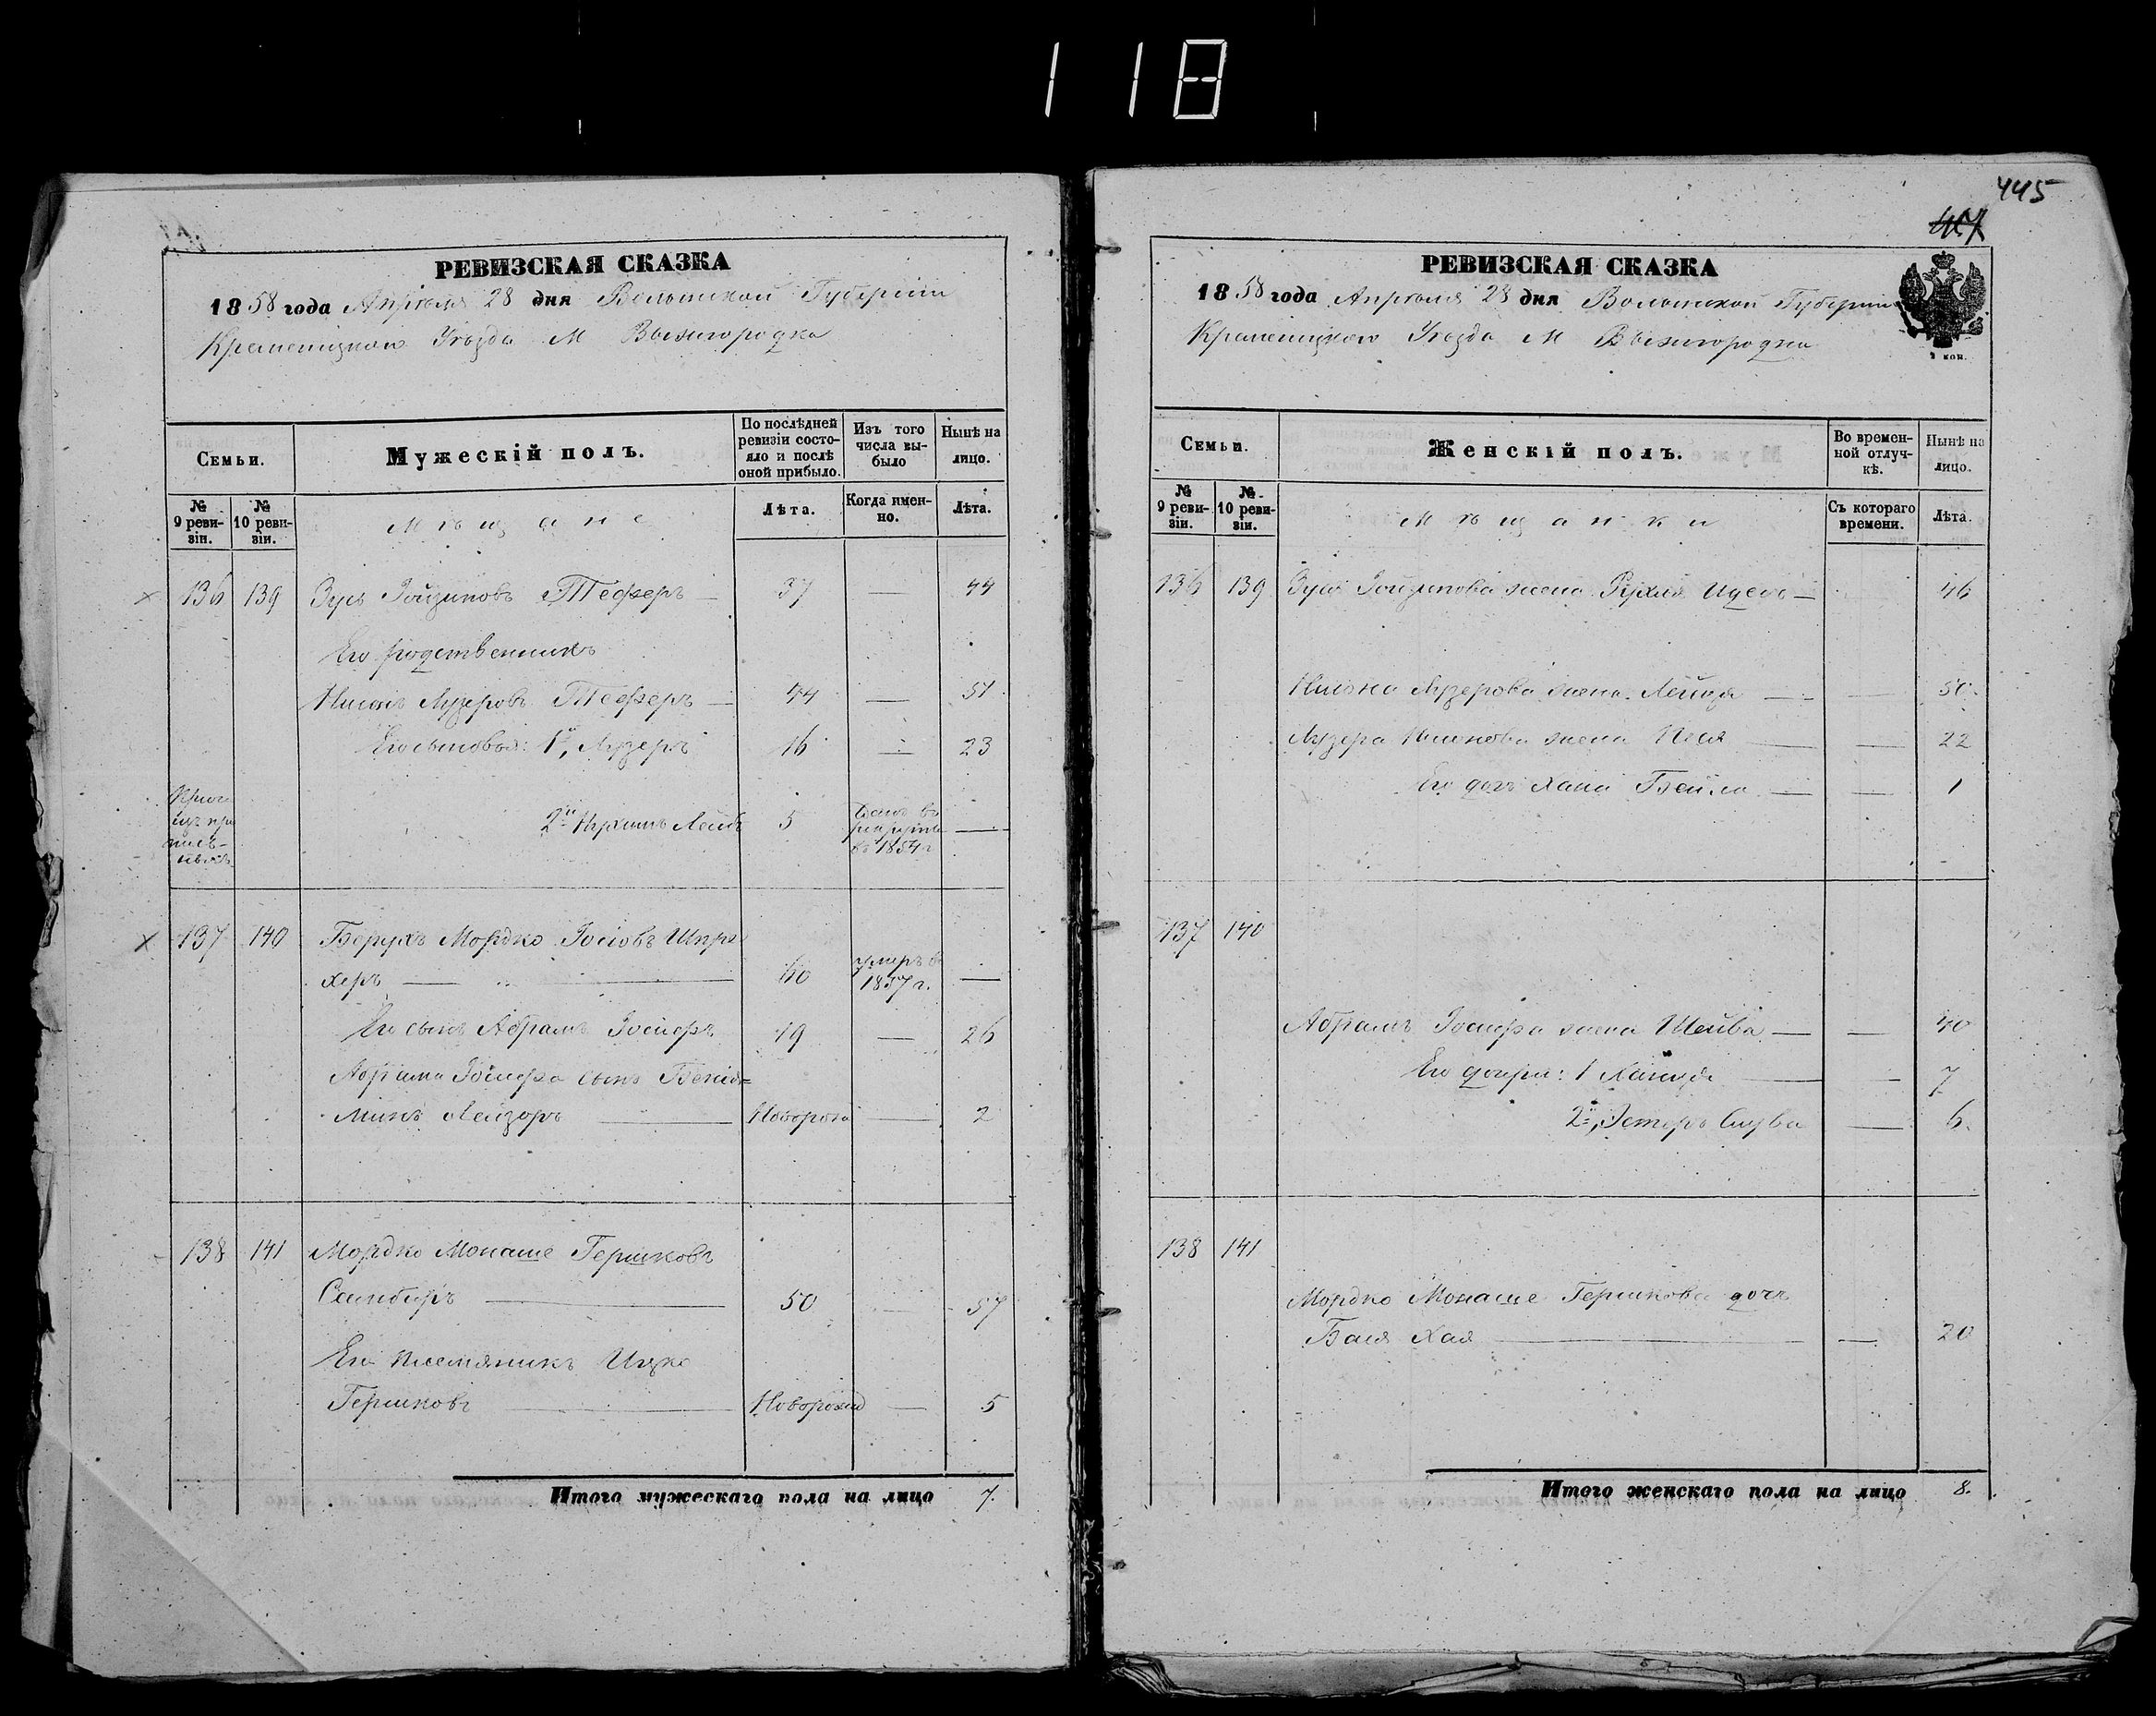 118
РЕВИЗСКАЯ СКАЗКА
1858 года Апрѣля 28 дня Волынской Губерніи
Кременецкаго Уѣзда М Вышгородка
Семьи.
Мужескій полъ.
По послѣдней ревизіи состояло и послѣ оной прибыло.
Изъ того числа выбыло
Нынѣ на лицо.
№ 9 ревизіи.
№ 10 ревизіи.
Мѣщане
Лѣта.
Когда именно.
Лѣта.
136 139 Зусь Тефферъ — 37 — 44
Его родственникъ
Лузеровъ Тефферъ — 44 — 51
Его сыновья: 1й, Лузеръ 16 — 23
2й Нухимъ Лейбъ 5 въ 1854 г —
137 140 Берухъ Мордко Іосіовъ Шпри
херъ — 60 умеръ в 1857 г. —
Его сынъ Абрамъ Іосиеръ 19 — 26
Абрама сынъ Беніа=
минъ Лейзоръ — Новорож — 2
138 141 Мордко Монаше Гершковъ
— 50 — 57
Его племяникъ Ицко
Гершковъ — Новорожд — 5
Итого мужескаго пола на лицо 7.
445
РЕВИЗСКАЯ СКАЗКА
1858 года Апрѣля 28 дня Волынской Губерніи
Кременецкаго Уѣзда М Вышгородка
Семьи.
Женскій полъ.
Во временной отлучкѣ.
Нынѣ на лицо.
№ 9 ревизіи.
№ 10 ревизіи.
Мѣщанки
Съ котораго времени.
Лѣта.
136 139 Зуся жена Рухля — 46
Лузерова жена Лейця — — 50.
Лузера жена Песя — — 22
Его дочь Хана Бейла — — 1
137 140
Абрамъ жена Шейва — — 40
Его дочери: 1 — — 7
2я, Эстеръ — 6.
138 141
Мордко Монаше Гершкова дочь
Бася Хая — — 20
Итого женскаго пола на лицо 8.